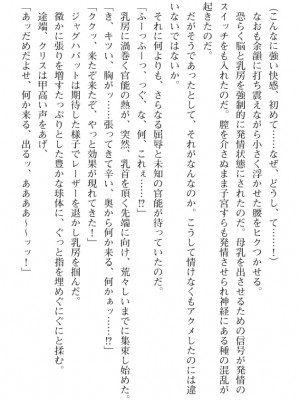 （こんなに強い快感、初めて……なぜ、どうし、て……！）
なおも余韻に打ち震えながら小さく浮かせた腰をヒクつかせる。
恐らく脳と乳房を強制的に発情状態にされたのだ。母乳を出させるための信号が発情の
スイッチをも入れたのだ。膣を介さぬまま子宮すらも発情させられ神経にある種の混乱が
起きたのだ。
だがそうであったとして、それがなんなのか。こうして情けなくもアクメしたのには違
いないではないか。
それに何よりも、さらなる屈辱と未知の官能が待っていたのだ。
「ふーっふーっ、っぐ、な、何、これぇ……⁉」
乳房に渦巻く官能の熱が、突然、乳首を頂く先端に向け、荒々しいまでに集束し始めた。
「き、キツい、胸がッ……張ってきて辛い、奥から何か来る、何かぁッ……⁉」
「ククッ、来たぞ来たぞ、やっと効果が現れてきた！」
ジャグハバットは期待した様子でレーザーを退かし乳房を掴んだ。
微かに張りを増すたっぷりとした豊かな球体に、ぐっと指を埋めぐにぐにと揉む。
途端、クリスは甲高い声をあげ、
「あっだめだよせ、何か来る、出るッ、ああああ〜ッッ！」